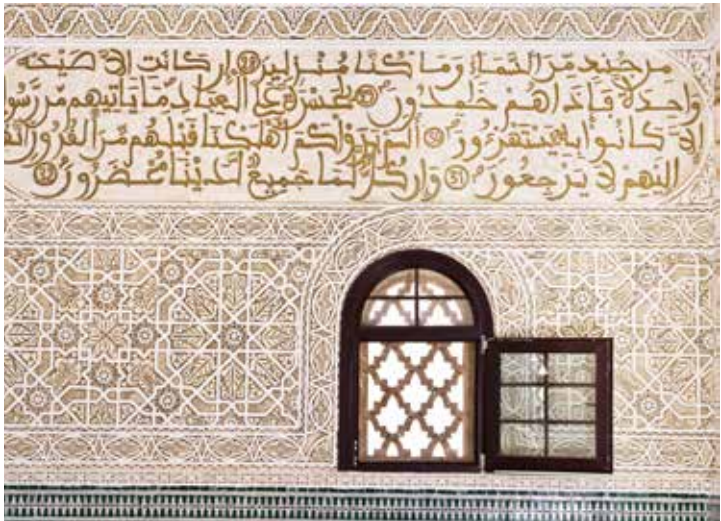 مِّنَ جُندٖ مِّنَ السَّمَآءِ وَمَا كُنَّا مُنزِلِينَ 28 إِن كَانَتِ اِلَّا صَيْحَةٗ
وَٰحِدَةٗ فَإِذَا هُمْ خَٰمِدُونَ 29 يَٰحَسْرَةً عَلَى اَلْعِبَادِ مَا يَاتِيهِم مِّن رَّسُو
اِلَّا كَانُوا بِهِ يَسْتَهْزِءُونَ 30 أَلَمْ يَرَوْا كَمَ اَهْلَكْنَا قَبْلَهُم مِّنَ اَلْقُرُونِ
إِلَيْهِمْ لَا يَرْجِعُونَ 31 وَإِن كُلّٞ لَّمَا جَمِيعٞ لَّدَيْنَا مُحْضَرُونَ 32